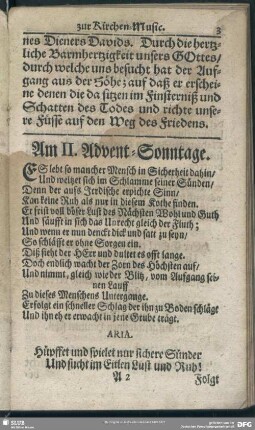 zur Kirchen-Music. 3
nes Dieners Davids. Durch die hertz-
liche Barmhertzigkeit unsers GOttes/
durch welche uns besucht hat der Auf-
gang aus der Höhe; auf daß er erschei-
ne denen die da sitzen im Finsterniß und
Schatten des Todes und richte unse-
re Füsse auf den Weg des Friedens.
Am II. Advent-Sonntage.
ES lebt so mancher Mensch in Sicherheit dahin/
Und weltzet sich im Schlamme seiner Sünden/
Denn der aufs Irdische erpichte Sinn/
Kan keine Ruh als nur in diesem Kothe finden.
Er frist voll böser Lust des Nächsten Wohl und Guth
Und säufft in sich das Unrecht gleich der Fluth;
Und wenn er nun denckt dick und satt zu seyn/
So schläfft er ohne Sorgen ein.
Diß sieht der HErr und dultet es offt lange.
Doch endlich wacht der Zorn des Höchsten auf/
Und nimmt, gleich wie der Blitz, vom Aufgang sei-
nen Lauff
Zu dieses Menschens Untergange.
Erfolgt ein schneller Schlag der ihn zu Boden schlägt
Und ihn eh er erwacht in jene Grube trägt.
ARIA.
Hüpffet und spielet nur sichere Sünder
Und sucht im Eitlen Lust und Ruh!
A 2
Folgt
SLUB
DFG